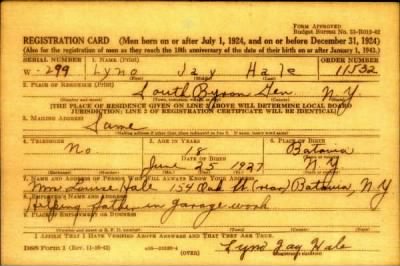 FORM APPROVED
Budget Bureau No. 33-R012-42
REGISTRATION CARD (Men born on or after July 1, 1924, and on or before December 31, 1924)
(Also for the registration of men as they reach the 18th anniversary of the date of their birth on or after January 1, 1943.)
SERIAL NUMBER 1. NAME (Print) ORDER NUMBER
W-299 Lyno Jay Hale 11532
(First) (Middle) (Last)
2. PLACE OF RESIDENCE (Print)
South Byron Gen. N.Y.
(Number and street) (Town, township, village, or city) (County) (State)
[THE PLACE OF RESIDENCE GIVEN ON LINE 2 ABOVE WILL DETERMINE LOCAL BOARD
JURISDICTION; LINE 2 OF REGISTRATION CERTIFICATE WILL BE IDENTICAL]
3. MAILING ADDRESS
Same
[Mailing address if other than place indicated on line 2. If same insert word same]
4. TELEPHONE 5. AGE IN YEARS 6. PLACE OF BIRTH
No 18 Batavia
DATE OF BIRTH
June 25 1927 N.Y.
(Mo.) (Day) (Yr.)
7. NAME AND ADDRESS OF PERSON WHO WILL ALWAYS KNOW YOUR ADDRESS
Mrs Louise Hale 154 Oak St. (rear) Batavia, N.Y
8. EMPLOYER'S NAME AND ADDRESS
Helping father in garage work
9. PLACE OF EMPLOYMENT OR BUSINESS
(Number and street or R. F. D. number) (Town) (County) (State)
I AFFIRM THAT I HAVE VERIFIED ABOVE ANSWERS AND THAT THEY ARE TRUE.
DSS Form 1 (Rev. 11-16-42) (OVER) Lyno Jay Hale
(Registrant's signature)